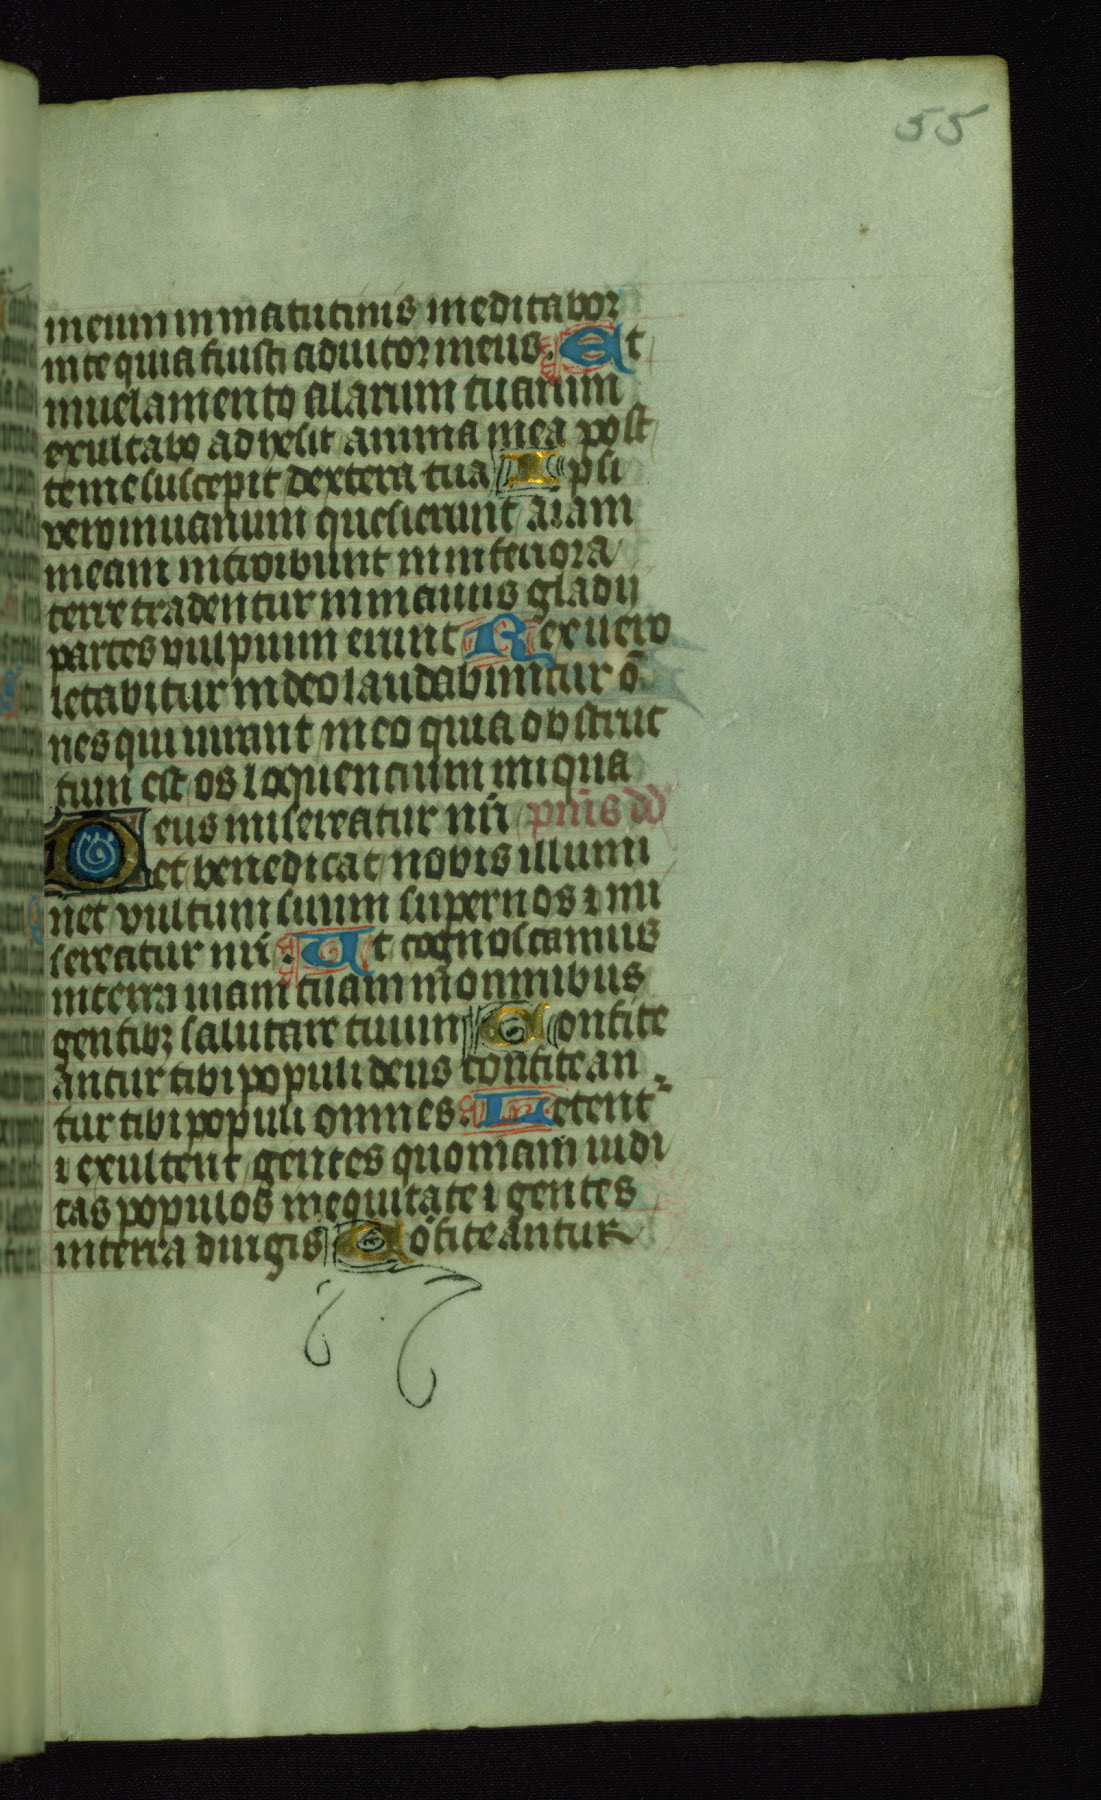 55
meum in matutinis meditabor
in te quia fuisti adiutor meus. Et
in uelamento alarum tuarum
exultabo adhesit anima mea post
te me suscepit dextera tua Ipsi
vero in uanum quesierunt aiam
meam introibunt in inferiora
terre tradentur in manus gladij
partes vulpium erunt Rex uero
letabitur in deo laudabuntur ō
nes qui iurant in eo quia obstruc
tum est os loquencium iniqua
Deus misereatur nri psmus dd
et benedicat nobis illumi
net vultum suum super nos ⁊ mi
sereatur nri. Ut cognoscamus
in terra uiam tuam in omnibus
gentibꝫ salutare tuum Confite
antur tibi populi deus confitean
tur tibi populi omnes. Letent᷑
⁊ exultent gentes quoniam iudi
cas populos in equitate ⁊ gentes
in terra dirigis Cōfiteantur